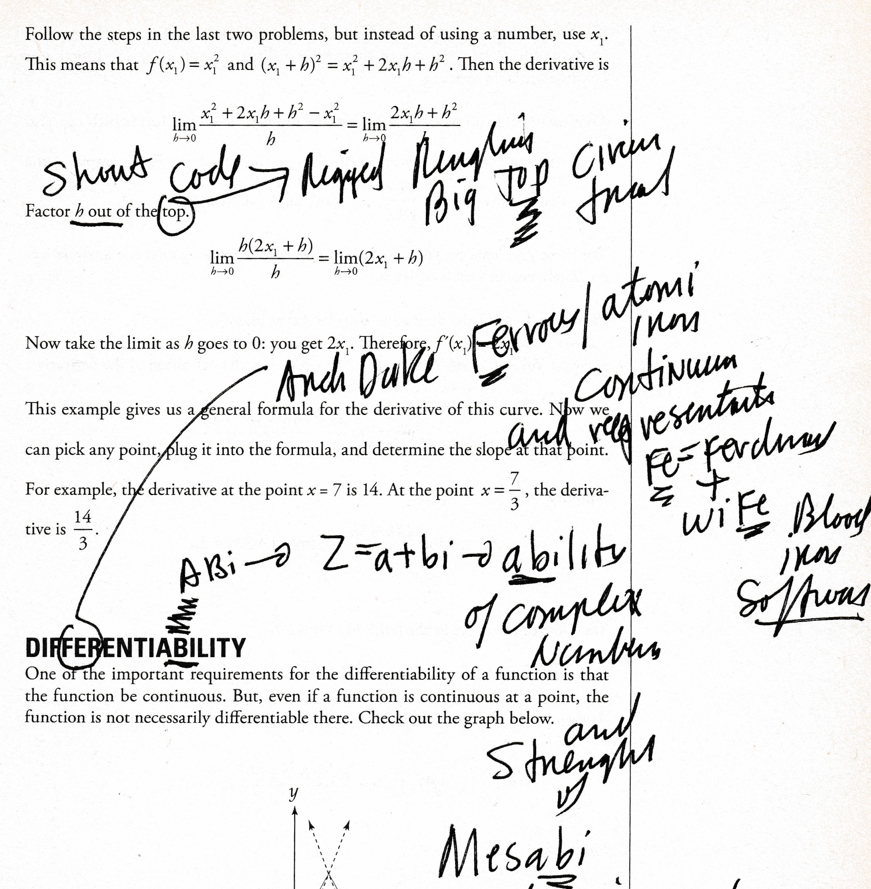 Follow the steps in the last two problems, but instead of using a number, use x₁.
This means that f(x₁) = x₁² and (x₁ + h)² = x₁² + 2x₁h + h². Then the derivative is
lim h→0 (x₁² + 2x₁h + h² − x₁²)/h = lim h→0 (2x₁h + h²)/h
Shout Code → Rigged
Big Top
Factor h out of the top.
lim h→0 h(2x₁ + h)/h = lim h→0 (2x₁ + h)
Ferrous / atomi
iron
Now take the limit as h goes to 0: you get 2x₁. Therefore, f′(x₁) = 2x₁.
Arch Duke
Continuum
This example gives us a general formula for the derivative of this curve. Now we
and
can pick any point, plug it into the formula, and determine the slope at that point.
Fe =
+
For example, the derivative at the point x = 7 is 14. At the point x = 7/3, the deriva-
tive is 14/3.
wiFe Blood
iron
Software
ABi → Z = a + bi → ability
of complex
Numbers
DIFFERENTIABILITY
One of the important requirements for the differentiability of a function is that
the function be continuous. But, even if a function is continuous at a point, the
function is not necessarily differentiable there. Check out the graph below.
and
Strenght
of
y
Mesabi